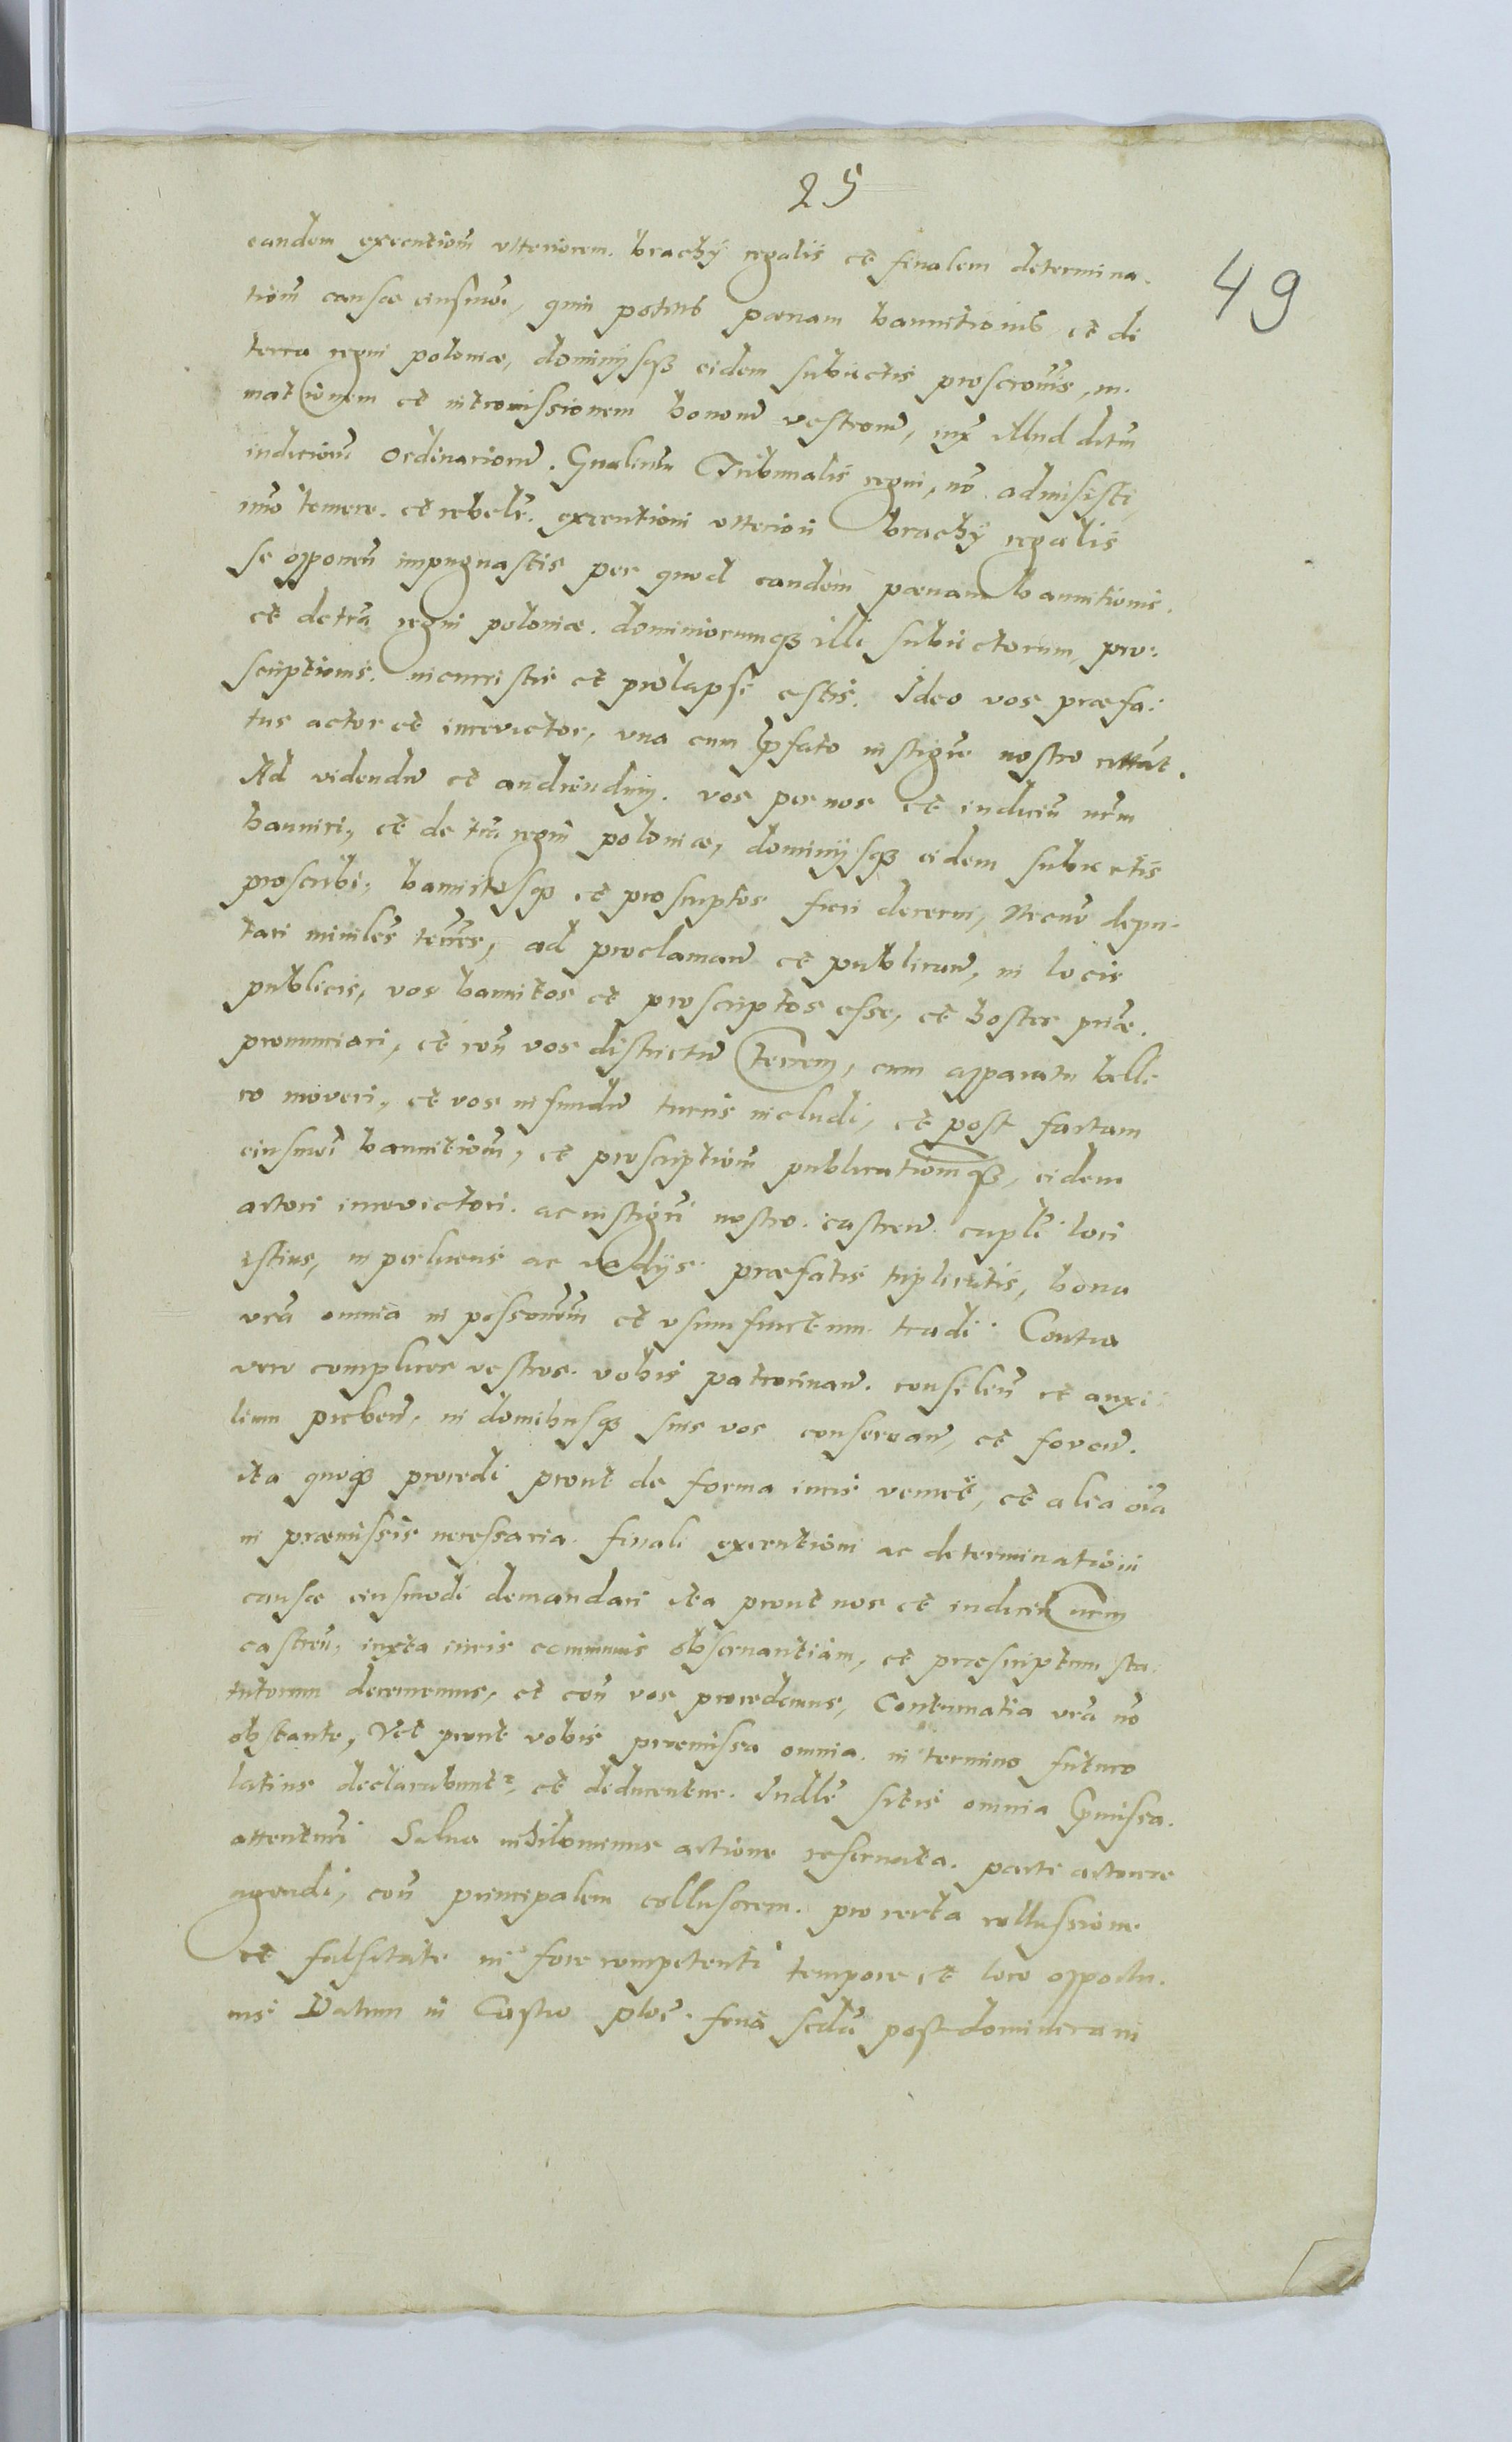 25
49
eandem executiom̄ ulteriorem. brachÿ regalis et finalem determina-
tiom̄ causæ eiusmoī, quin potius pœnam bannitionis et de
terra regni poloniæ, dominÿsqȝ eidem subiectis proscrōnis, in-
mationem et intromissionem bonorū vestrorū, iux̄ illud dictum
iudiciorū Ordinariorū. Gnalium Tribunalis regni, nō admisistis,
imō temere et rebelr̄. executioni ulteriori brachÿ regalis
se opponeñ impugnastis per quod eandem pœnam bannitionis.
et de trā regni poloniæ. dominiorumqȝ illi subiectorum, pro-
scriptionis. incurristis et prolapsi estis. Ideo vos præfa-
tus actor et incevictor, una cum p̄fato instigre nostro citant.
Ad videndū et audiendum. vos per nos et iudiciū nrm̄
banniri, et de trā regni poloniæ, dominÿsqȝ eidem subiectis
proscribi, bannitosqȝ et proscriptos fieri decerni, Necnō depu-
tari mīnĺes terrēs, ad proclamanđ et publicanđ, in locis
publicis, vos bannitos et proscriptos esse, et hostes prīæ.
pronunciari, et con̄ vos districtū terrem̄, cum apparatu belli-
co moveri, et vos in fundū turris includi, et post factam
eiusmoī bannitiom̄, et proscriptiom̄ publicatiom̄qȝ, eidem
actori incevictori. ac instigri nostro castreñ. capli loci
istius, in perlucris ac vadÿs præfatis triplicatis, bona
vrā omnia in possessionem et usumfructum tradi. Contra
vero complices vestros. vobis patrocinanđ. consileñ et auxi-
lium prebeñ, in domibusqȝ suis vos conservanđ, et fovenđ.
ita quoqȝ procedi prout de forma iuris veniet, et alia oīa
in præmissis necessaria. finali executioni ac determinationi
causæ eiusmodi demandari ita prout nos et iudiciū nrm̄
castreñ, iuxta iuris communis observantiam, et præscriptum sta-
tutorum decernemus, et con̄ vos procedemus, Contumatia vrā nō
obstante, Vti prout vobis premissa omnia. in termino futuro
latius declarabuntr, et deducentur. Iudlr̄ sitis omnia p̄missa.
attenturi Salva nihilominus actione reservata. parti actoreæ
agendi, con̄ principalem collusorem. pro certa collussione
et falsitate in foro competenti tempore et loco opportu-
nis Datum in Castro ploc̄. feria scdā post dominicam